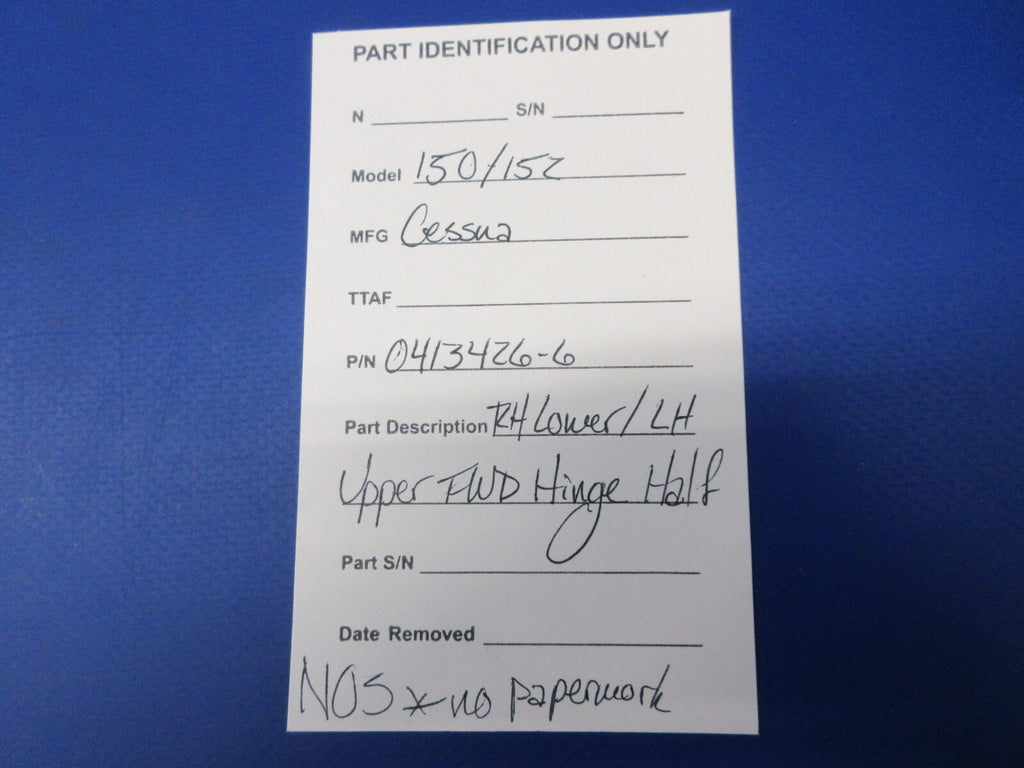 PART IDENTIFICATION ONLY
N S/N
Model 150/152
MFG Cessna
TTAF
P/N 0413426-6
Part Description RH Lower/LH
Upper FWD Hinge Half
Part S/N
Date Removed
NOS * no paperwork